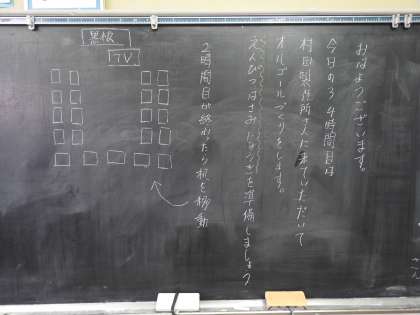 おはようございます。
今日の3、4時間目は
村田製作所さんに来ていただいて
オルゴールづくりをします。
えんぴつ はさみ を準備しましょう
2時間目が終わったら机を移動
黒板
TV